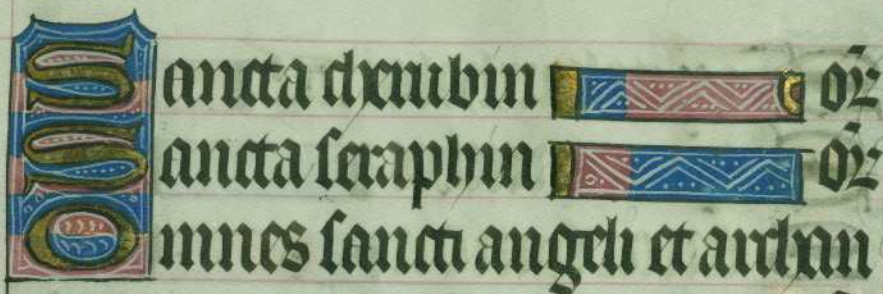 Sancta cherubin or
Sancta seraphin or
Omnes sancti angeli et archan